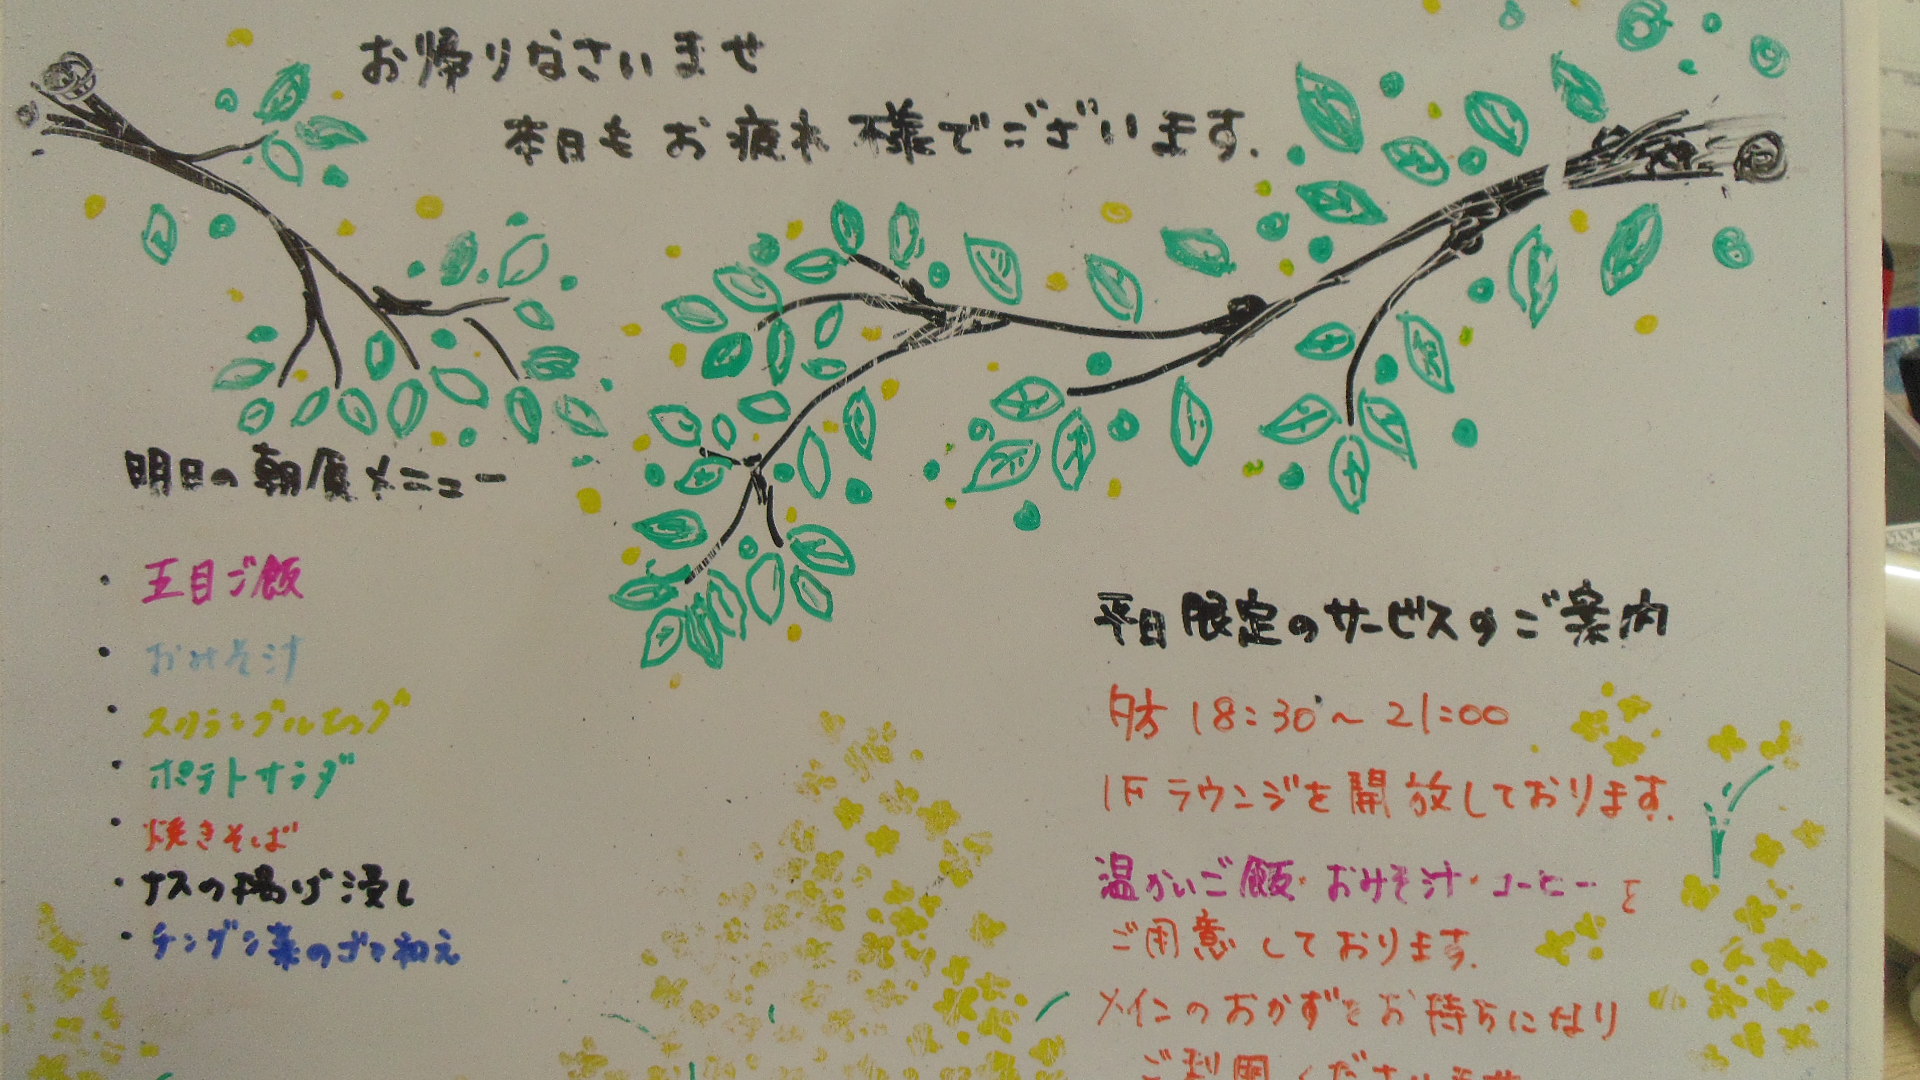 お帰りなさいませ
本日もお疲れ様でございます.
明日の朝食メニュー
・五目ご飯
・おみそ汁
・スクランブルエッグ
・ポテトサラダ
・焼きそば
・ナスの揚げ浸し
・チンゲン菜のゴマ和え
平日限定のサービスのご案内
夕方 18:30～21:00
1Fラウンジを開放しております.
温かいご飯・おみそ汁・コーヒーを
ご用意しております.
メインのおかずをお持ちになり
ご利用くださいませ